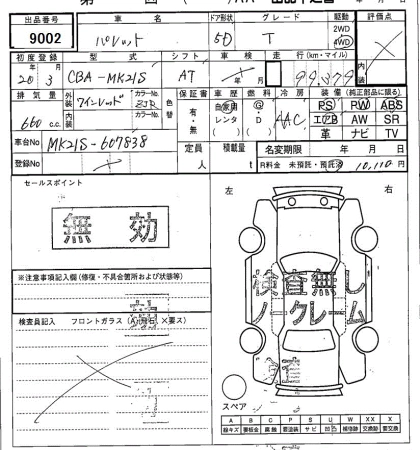 出品番号 車名 ドア形状 グレード 駆動 評価点
9002 パレット 5D T 2WD 4WD
初度登録 型式 シフト 車検 走行(km・マイル) 内装
20年 3月 CBA-MK21S AT 年 月 99,379
排気量 外装 ワインレッド カラーNo. ZJR 色替 保証書 車歴 燃料 冷房 装備(純正部品に限る)
660 c.c. 内装 カラーNo. 有・無 自家用 レンタ ( ) G・D ( ) AAC PS PW ABS
エアB AW SR
革 ナビ TV
車台No MK21S-607838 定員 人 積載量 t 名変期限 年 月 日
登録No R料金 未預託・預託済 10,110円
セールスポイント
無効
左 右
※注意事項記入欄(修復・不具合箇所および状態等)
検査員記入 フロントガラス(A・飛石・×要ス)
検査無し
ノークレーム
スペア
A B C P S U W X XX